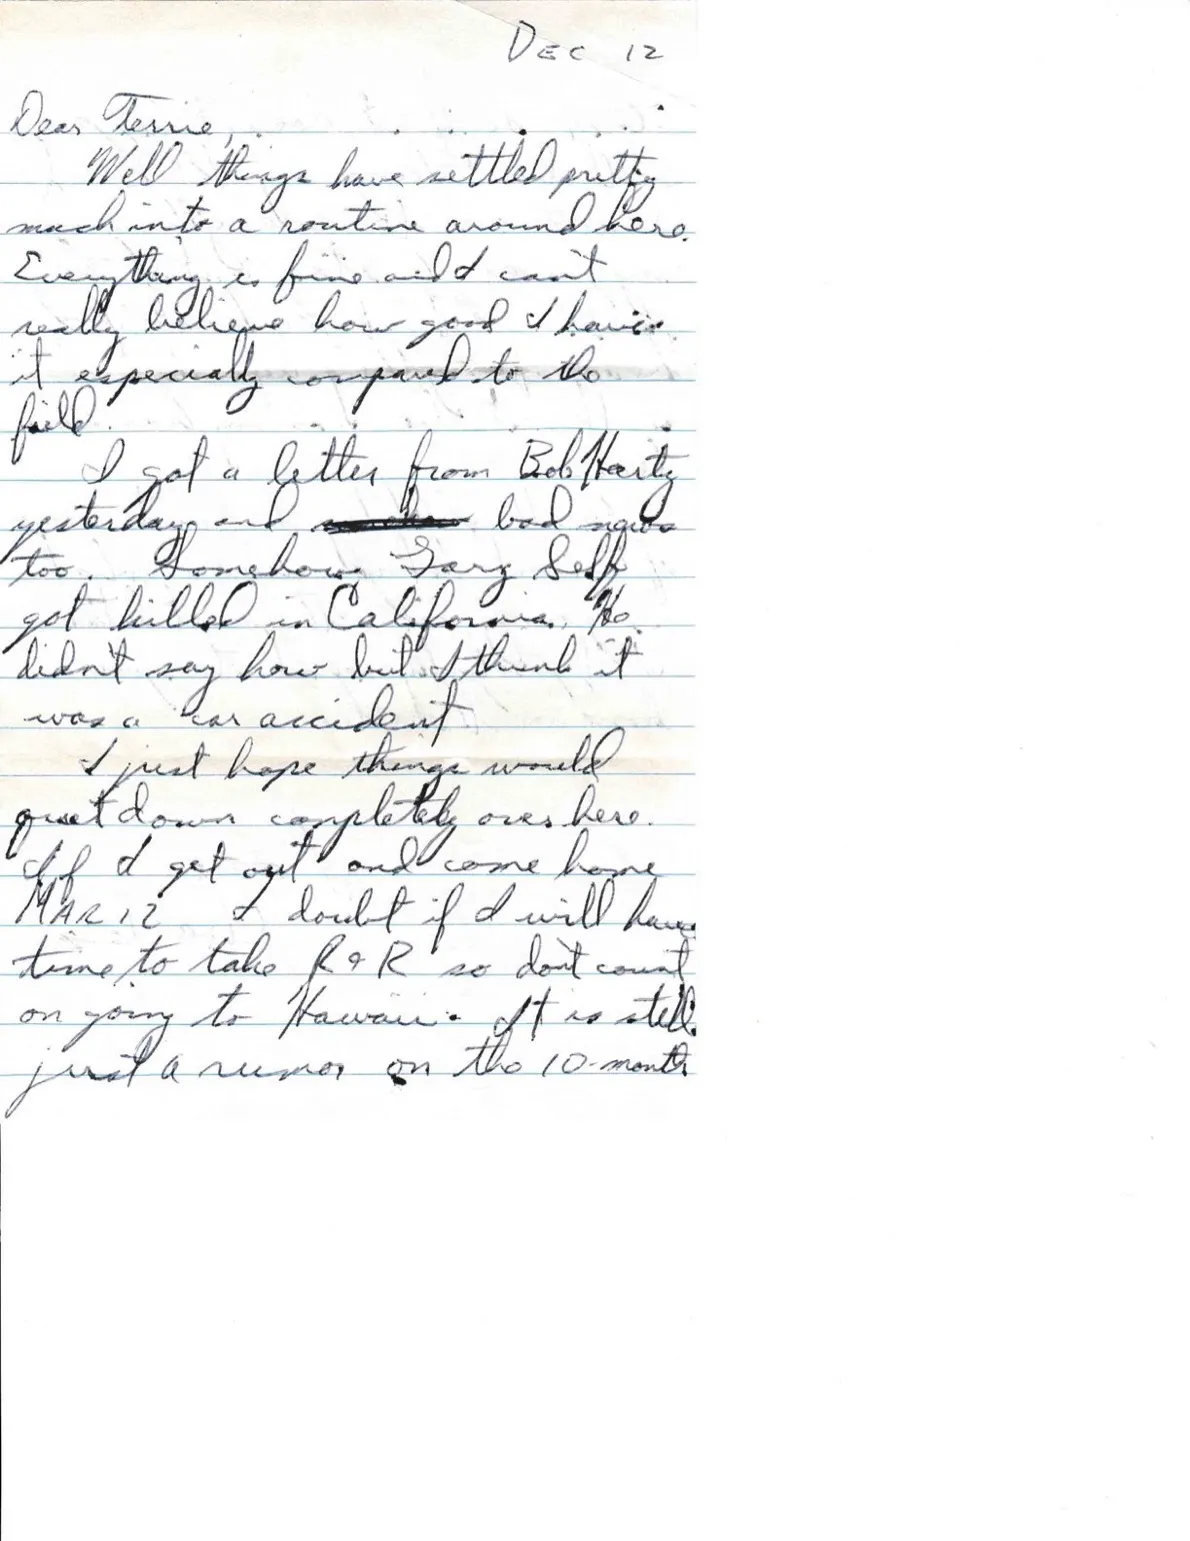 DEC 12
Dear Terrie,
Well things have settled pretty
much into a routine around here.
Everything is fine and I can't
really believe how good I have
it especially compared to the
field.
I got a letter from Bob Harty
yesterday and bad news
too. Somehow Gary Self
got killed in California. He
didn't say how but I think it
was a car accident
I just hope things would
quiet down completely over here.
If I get out and come home
MAR 12 I doubt if I will have
time to take R & R so don't count
on going to Hawaii. It is still
just a rumor on the 10-month